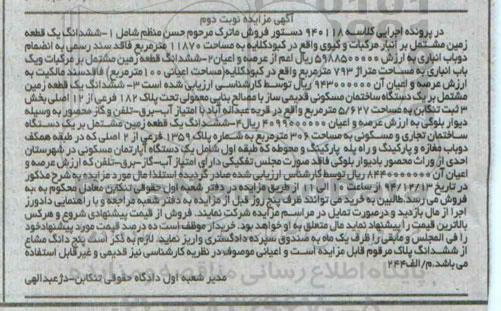 آگهی مزایده نوبت دوم
در پرونده اجرایی کلاسه ۹۴۰۱۱۸ دستور فروش ماترک مرحوم حسن منظم شامل ۱-ششدانگ یک قطعه
زمین مشتمل بر انبار مرکبات و کیوی واقع در کبودکلایه به مساحت ۱۱۸۷۰ مترمربع فاقد سند رسمی به انضمام
دوباب انباری به ارزش ۵۹۸۸۵۰۰۰۰۰ ریال اعم از عرصه و اعیان ۲-ششدانگ قطعه زمین مشتمل بر مرکبات ویک
باب انباری به مساحت متراژ ۷۹۳ مترمربع واقع در کبودکلایه(مساحت اعیانی ۱۰۰مترمربع) فاقدسند مالکیت به
ارزش عرصه و اعیان آن ۹۴۳۰۰۰۰۰۰ ریال توسط کارشناسی ارزیابی شده است ۳- ششدانگ یک قطعه زمین
مشتمل بر یک دستگاه ساختمان مسکونی قدیمی ساز با مصالح بنایی معمولی تحت پلاک ۱۸۲ فرعی از ۱۲ اصلی بخش
۳ ثبت تنکابن به مساحت ۵۲۷ مترمربع واقع در قریه عبداله آباد با امتیاز آب-برق-تلفن و گاز محصور به وسیله
دیوار بلوکی به ارزش عرصه و اعیان ۴۰۹۹۰۰۰۰۰۰ ریال ۴-ششدانگ یک قطعه زمین مشتمل بر یک دستگاه
ساختمان تجاری و مسکونی به مساحت ۳۰۶ مترمربع به شماره پلاک ۱۳۵۹ فرعی از ۲ اصلی که در طبقه همکف
دوباب مغازه و پارکینگ و راه پله پارکینگ و محوطه که طبقه اول شامل یک دستگاه آپارتمان مسکونی در شهرستان
احدی از وراث محصور بادیوار بلوکی فاقد صورت مجلس تفکیکی دارای امتیاز آب-گاز-برق-تلفن که ارزش عرصه و
اعیان آن ۸۴۴۰۰۰۰۰۰۰ ریال توسط کارشناس ارزیابی شده صادر گردیده استلذا مال مورد مزایده به شرح مذکور
در تاریخ ۹۴/۱۲/۱۳ از ساعت ۱۰ الی ۱۱ از طریق مزایده در دفتر شعبه اول حقوقی تنکابن معادل محکوم به به
فروش می رسد.طالبین به خرید می توانند ظرف پنج روز قبل از مزایده به دفتر شعبه مراجعه و با راهنمایی دادورز
اجرا از مال بازدید و درصورت تمایل در مراسم مزایده شرکت نمایند. فروش از قیمت پیشنهادی شروع و هرکس
بالاترین قیمت را پیشنهاد نماید مال متعلق به او خواهد بود. خریدار موظف است ده درصد قیمت مورد پیشنهادخود
را فی المجلس و مابقی را ظرف یک ماه به صندوق سپرده دادگستری واریز نماید. لازم به ذکر است پنج دانگ مشاع
از ششدانگ پلاک مرقوم قابل مزایده است و اعیانی موصوف در نظریه کارشناسی نیز قدیمی و غیرقابل استفاده
می باشد.م/الف۲۴۴
مدیر شعبه اول دادگاه حقوقی تنکابن-دژعبدالهی